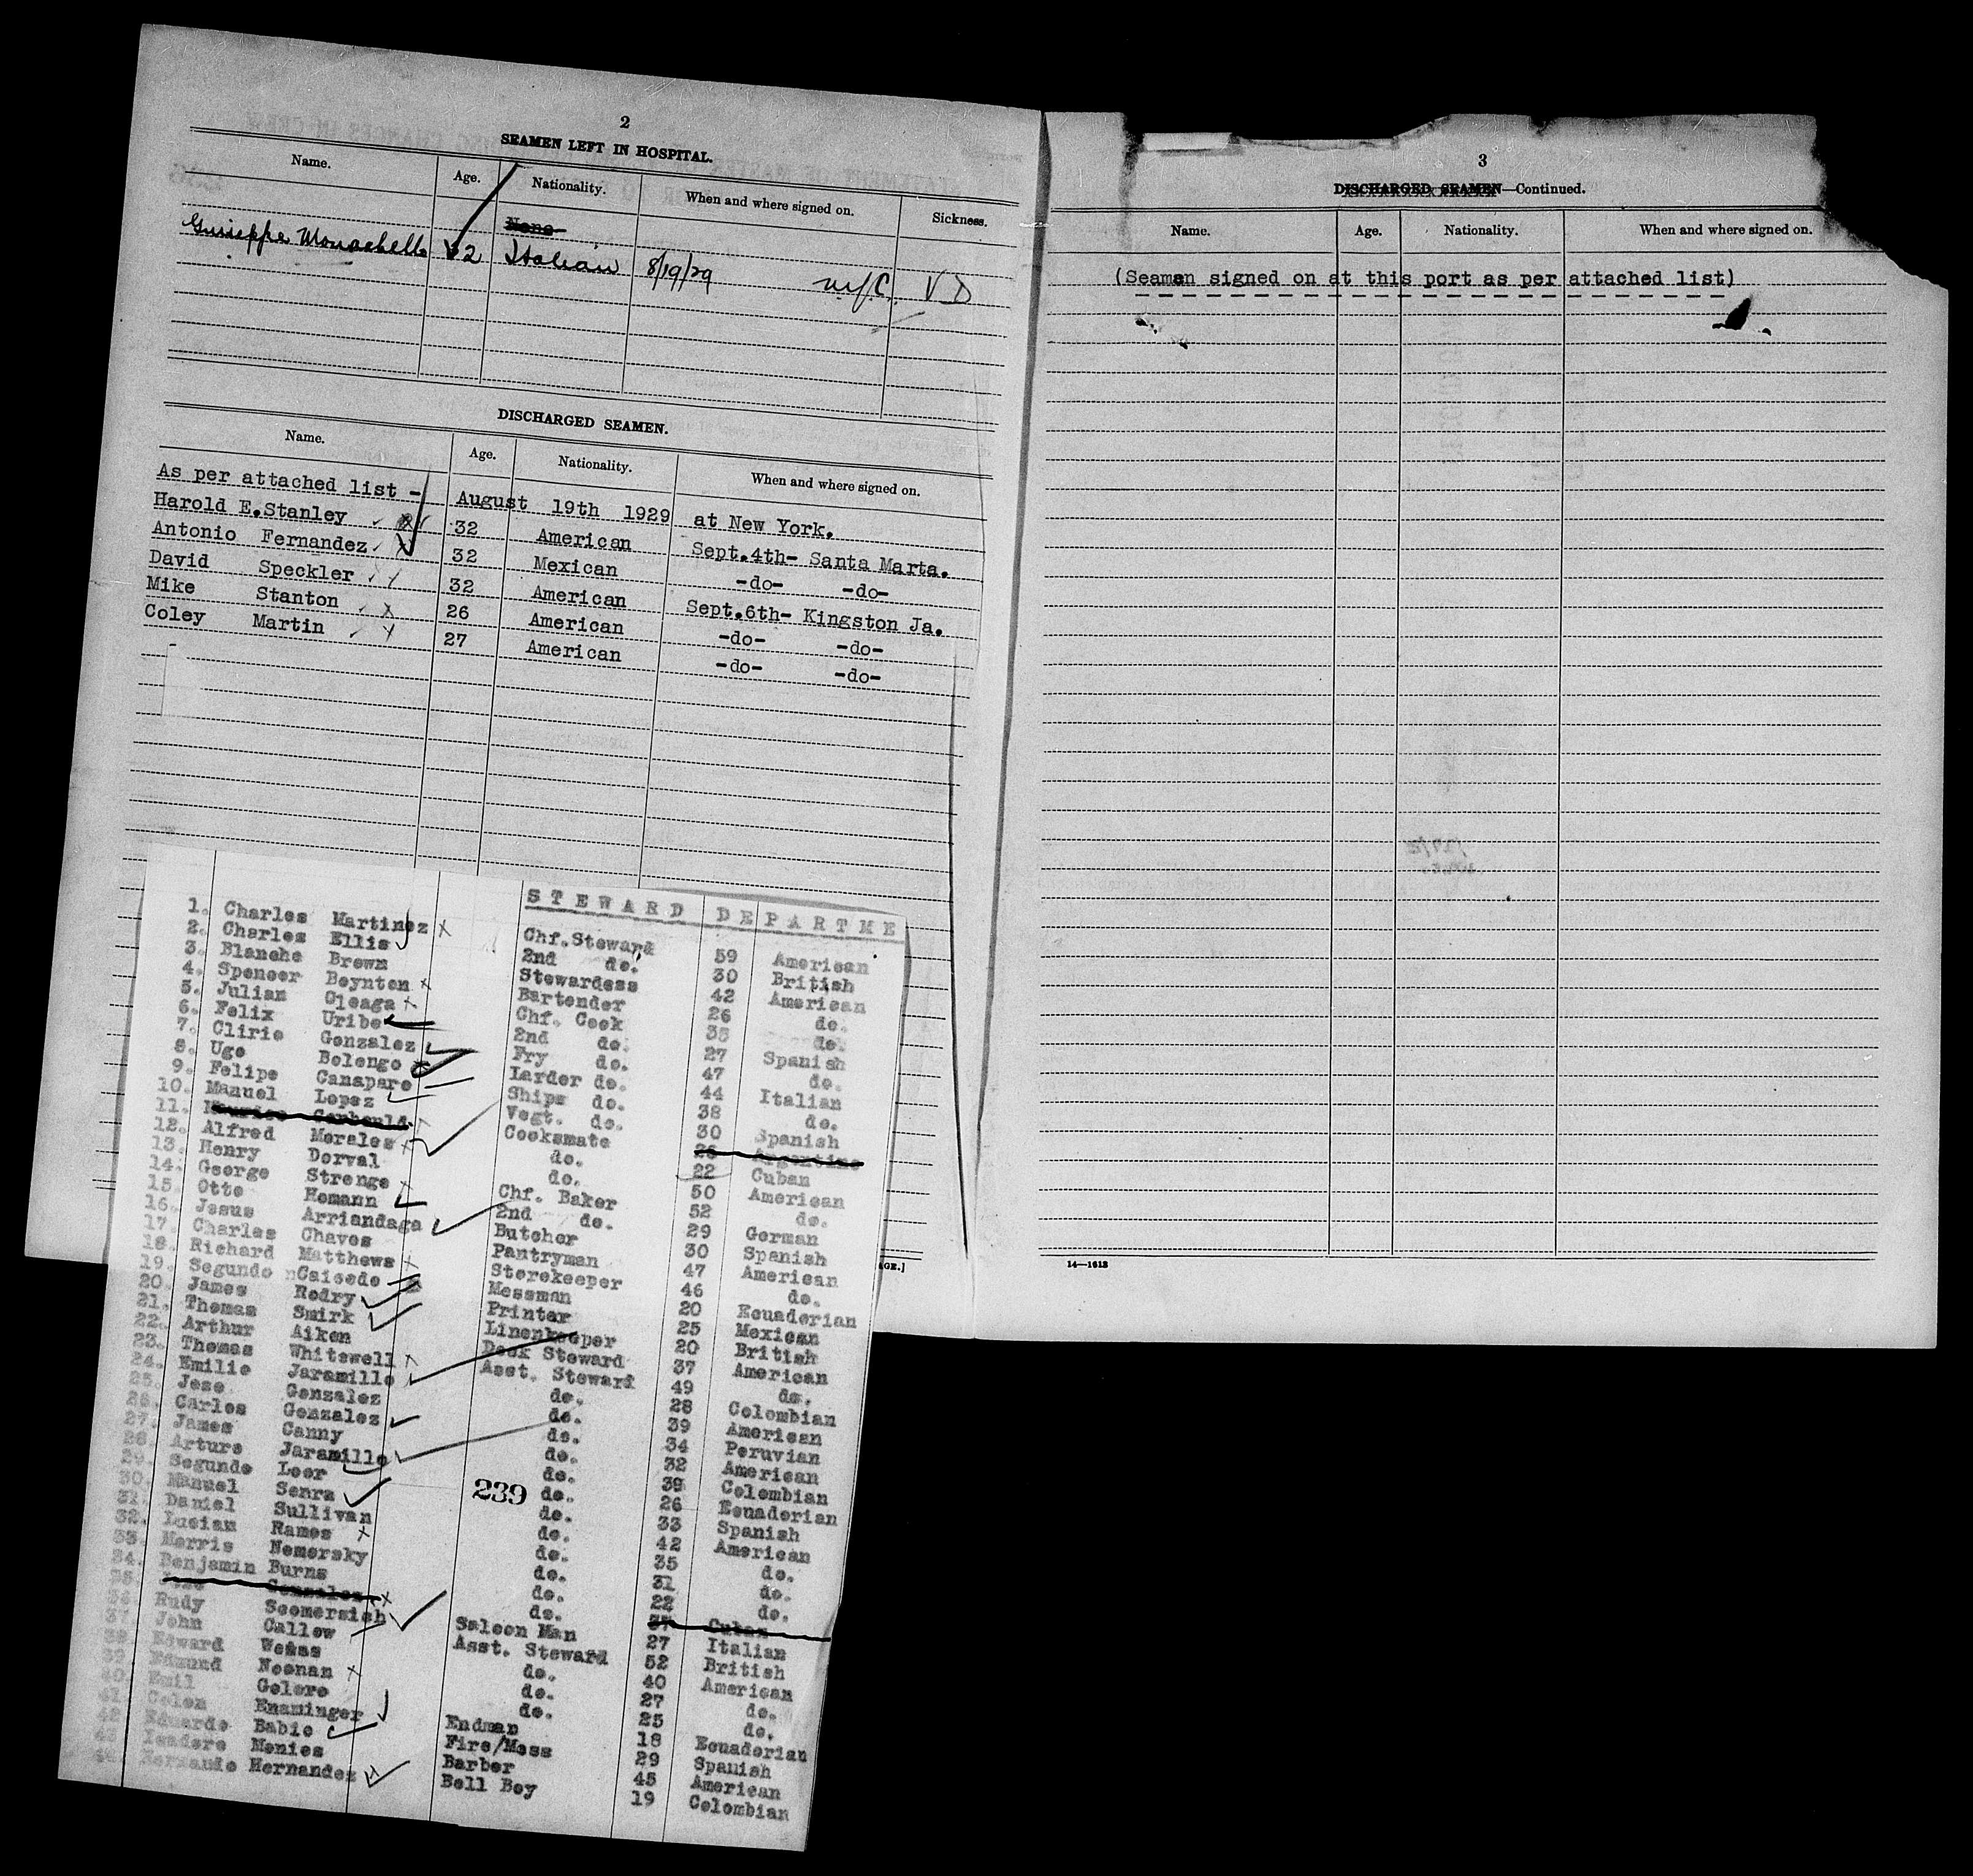 2
SEAMEN LEFT IN HOSPITAL.
Name. Age. Nationality. When and where signed on. Sickness.
None
Guiseppe Monachello 32 Italian 8/19/29 NYC. VD
DISCHARGED SEAMEN.
Name. Age. Nationality. When and where signed on.
As per attached list - August 19th 1929 at New York.
Harold E.Stanley 32 American Sept.4th- Santa Marta.
Antonio Fernandez 32 Mexican -do- -do-
David Speckler 32 American Sept.6th- Kingston Ja.
Mike Stanton 26 American -do- -do-
Coley Martin 27 American -do- -do-
AGE.]
STEWARD DEPARTME
1. Charles Martinez Chf.Steward 59 American
2. Charles Ellis 2nd do. 30 British
3. Blanche Brown Stewardess 42 American
4. Spencer Boynton Bartender 26 do.
5. Julian Oleaga Chf. Cook 35 do.
6. Felix Uribe 2nd do. 27 Spanish
7. Clirio Gonzalez Fry do. 47 do.
8. Ugo Belengo Larder do. 44 Italian
9. Felipe Canapare Ships do. 38 do.
10. Manuel Lopez Vegt. do. 30 Spanish
11. Cooksmate 26 Argentine
12. Alfred Morales do. 22 Cuban
13. Henry Dorval do. 50 American
14. George Strenge Chf. Baker 52 do.
15. Otto Homann 2nd do. 29 German
16. Jesus Arriandaga Butcher 30 Spanish
17. Charles Chaves Pantryman 47 American
18. Richard Matthews Storekeeper 46 do.
19. Segundo Caicedo Messman 20 Ecuadorian
20. James Rodry Printer 25 Mexican
21. Thomas Smirk Linenkeeper 20 British
22. Arthur Aiken Deck Steward 37 American
23. Thomas Whitewell Asst. Steward 49 do.
24. Emilio Jaramillo do. 28 Colombian
25. Jose Gonzalez do. 39 American
26. Carlos Gonzalez do. 34 Peruvian
27. James Canny do. 32 American
28. Arturo Jaramillo do. 39 Colombian
29. Segundo Loor do. 26 Ecuadorian
30. Manuel Senra do. 33 Spanish
31. Daniel Sullivan do. 42 American
32. Lucian Ramos do. 35 do.
33. Morris Nemorsky do. 31 do.
34. Benjamin Burns do. 22 do.
35. Jose Gonzalez do. 37 Cuban
36. Rudy Scomersich Saloon Man 27 Italian
37. John Callow Asst. Steward 52 British
38. Edward Weiss do. 40 American
39. Edmund Noonan do. 27 do.
40. Emil Golore do. 25 do.
41. Colon Enzminger Endman 18 Ecuadorian
42. Eduardo Babio Fire/Mess 29 Spanish
43. Isadore Monies Barber 45 American
44. Hernando Hernandez Bell Boy 19 Colombian
239
3
DISCHARGED SEAMEN—Continued.
Name. Age. Nationality. When and where signed on.
(Seamen signed on at this port as per attached list)
14—1613